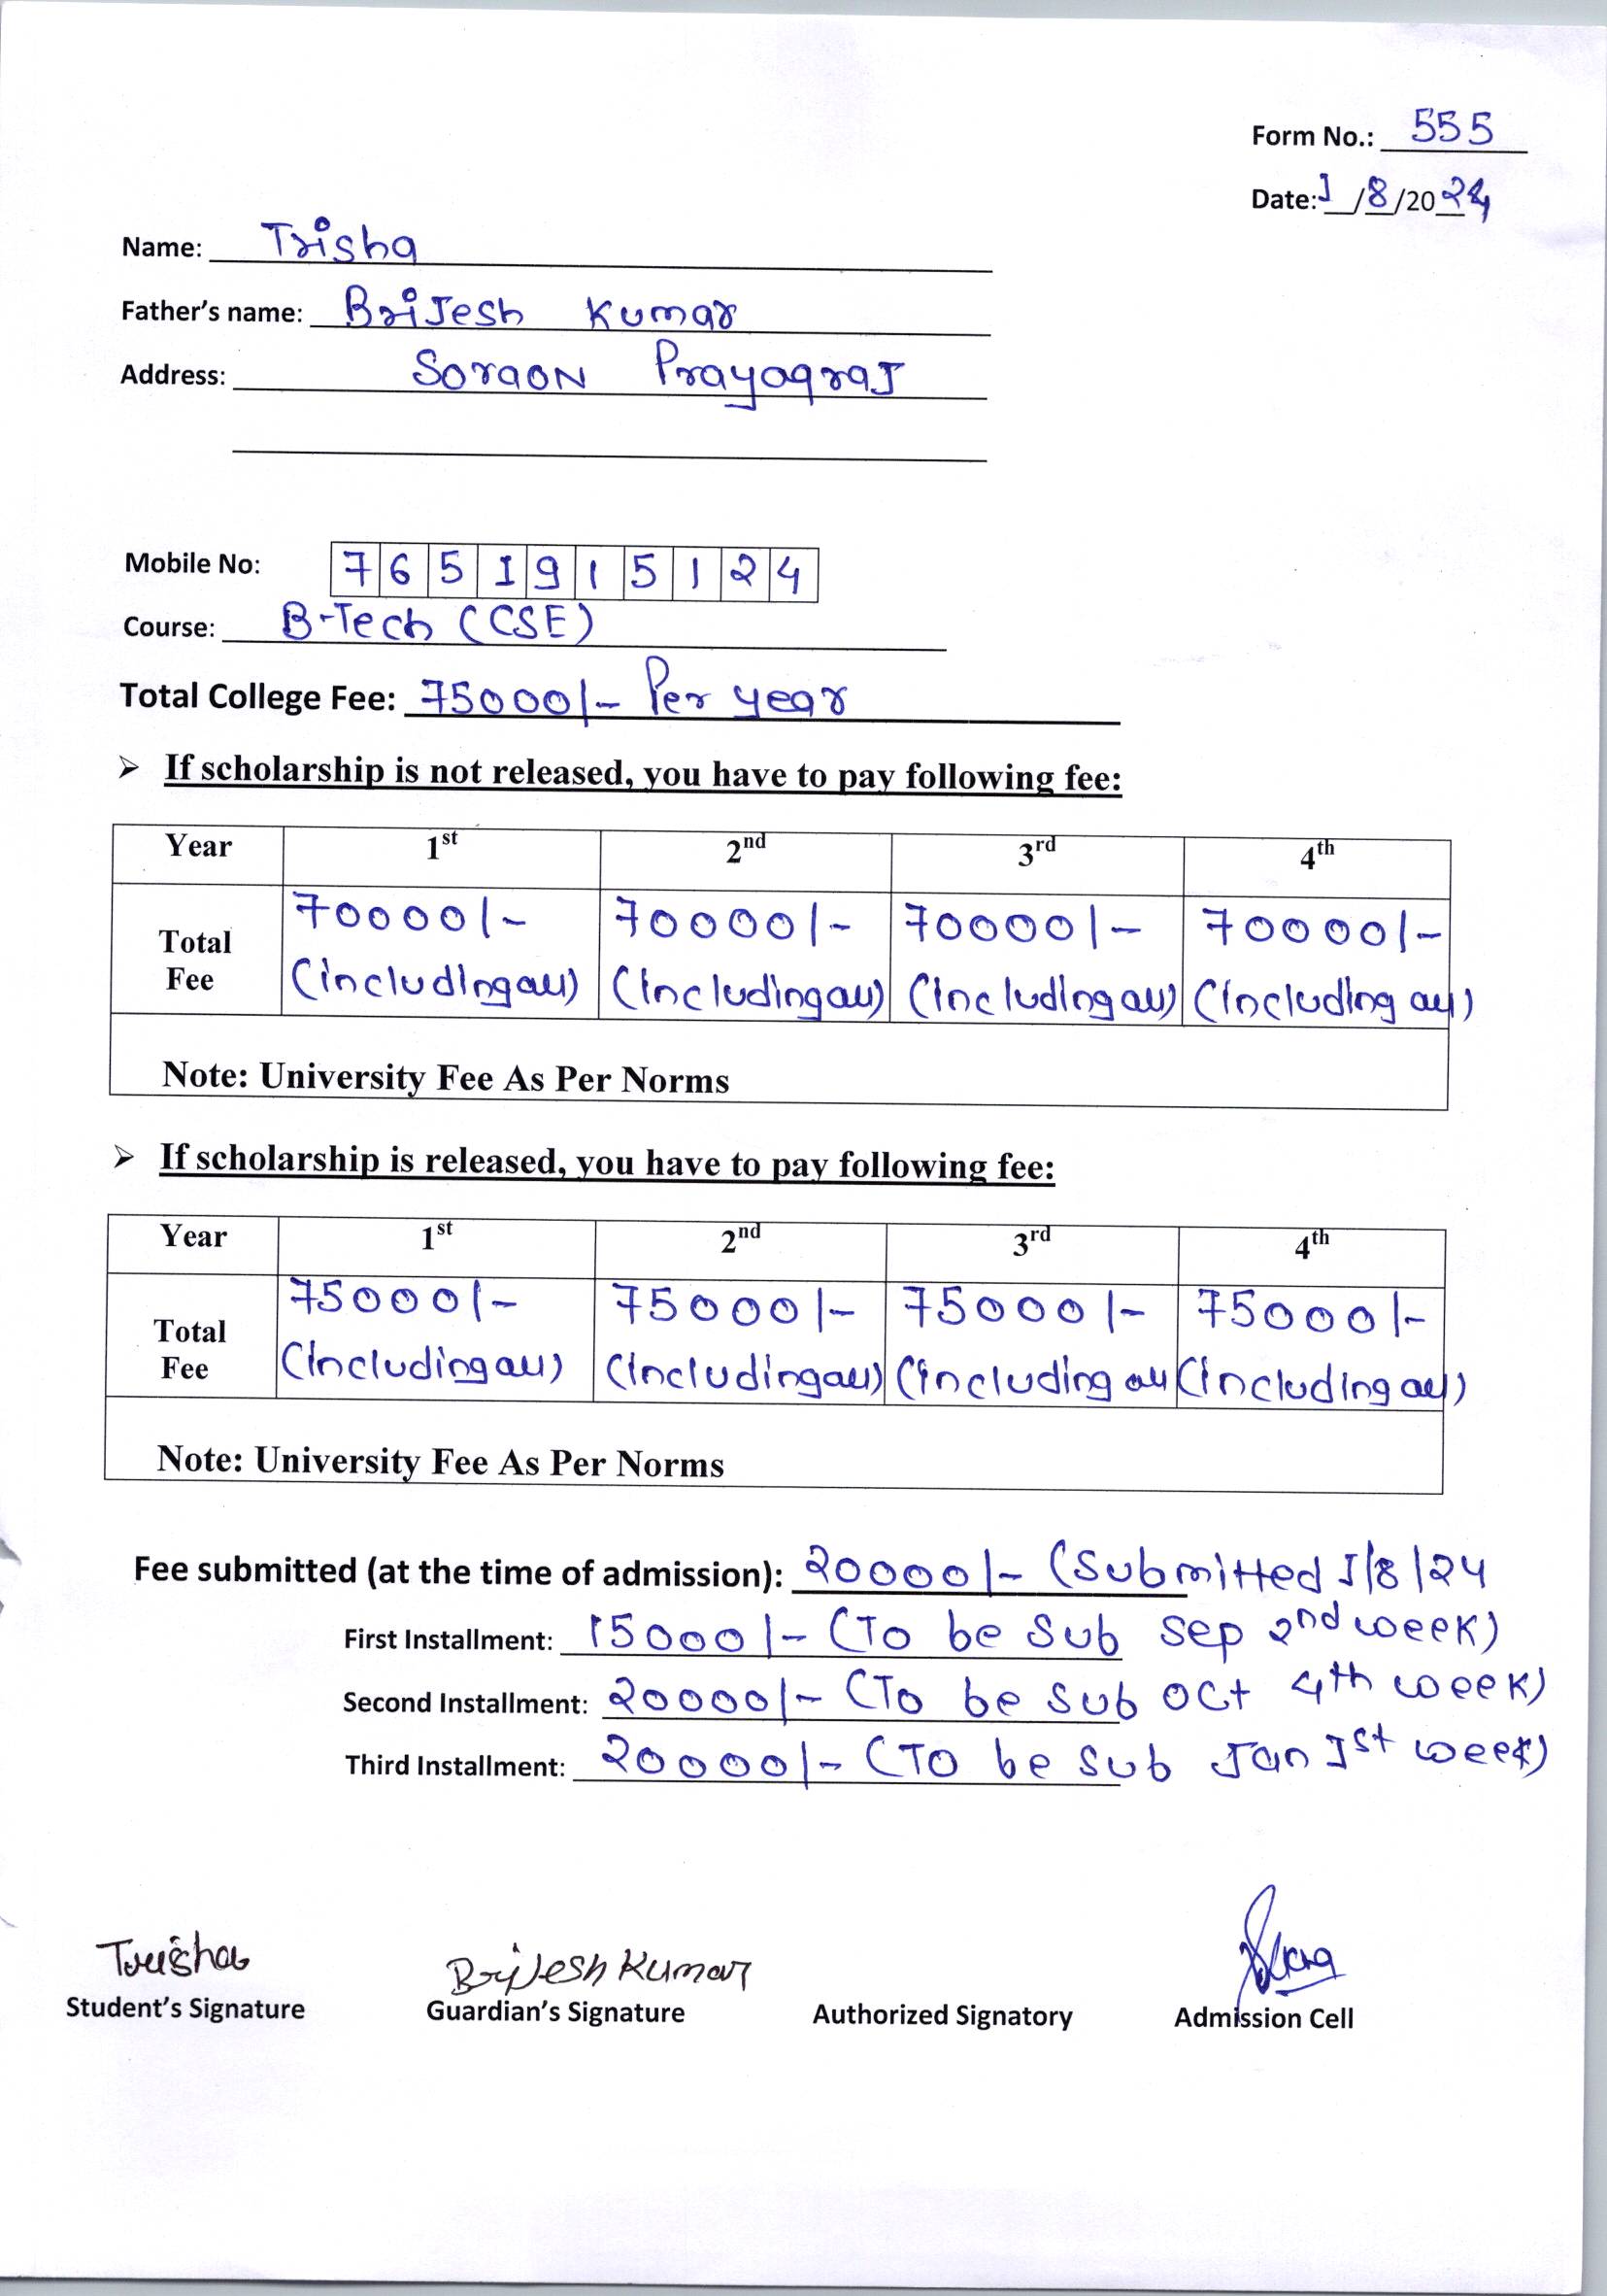 Form No.: 555
Date: 1/8/2024
Name: Trisha
Father's name: Brijesh Kumar
Address: Soraon Prayagraj
Mobile No: 7651915124
Course: B-Tech (CSE)
Total College Fee: 75000/- Per year
➢ If scholarship is not released, you have to pay following fee:
Year 1st 2nd 3rd 4th
Total Fee 70000/- (including all) 70000/- (including all) 70000/- (including all) 70000/- (including all)
Note: University Fee As Per Norms
➢ If scholarship is released, you have to pay following fee:
Year 1st 2nd 3rd 4th
Total Fee 75000/- (including all) 75000/- (including all) 75000/- (including all 75000/- (including all)
Note: University Fee As Per Norms
Fee submitted (at the time of admission): 20000/- (Submitted 1/8/24
First Installment: 15000/- (To be Sub Sep 2nd week)
Second Installment: 20000/- (To be Sub Oct 4th week)
Third Installment: 20000/- (To be Sub Jan 1st week)
Trisha Brijesh Kumar
Student's Signature Guardian's Signature Authorized Signatory Admission Cell